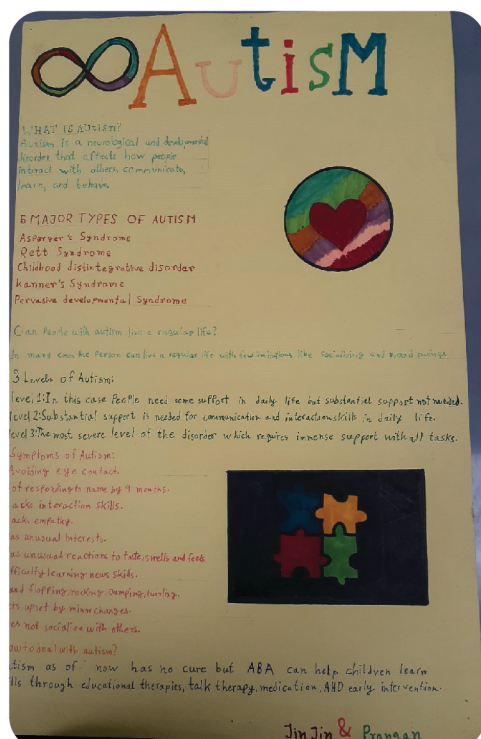 AUtisM
WHAT IS AUtism?
Autism is a neurological and developmental
disorder that affects how people
interact with others, communicate,
learn, and behave.
5 MAJOR TYPES OF AUTISM
Asperger's Syndrome
Rett Syndrome
Childhood distintegrative disorder
Kanner's Syndrome
Pervasive developmental Syndrome
Can People with autism live a regular life?
In many case the person can live a regular life with few limitations like socializing and mood swings.
3 Levels of Autism:
level 1:In this case people need some support in daily life but substantial support not needed.
level 2:Substantial support is needed for communication and interaction skills in daily life.
level 3:The most severe level of the disorder which requires immense support with all tasks.
Symptoms of Autism:
Avoiding eye contact.
ot responding to name by 9 months.
acks interaction skills.
acks empathy.
as unusual interests.
as unusual reactions to taste, smells and feels
fficulty learning news skills.
and flapping, rocking, Jumping, turning.
ts upset by minor changes.
es not socialise with others.
ow to deal with autism?
utism as of now has no cure but ABA can help children learn
lls through educational therapies, talk therapy, medication, AND early intervention.
Jin Jin & Prangan